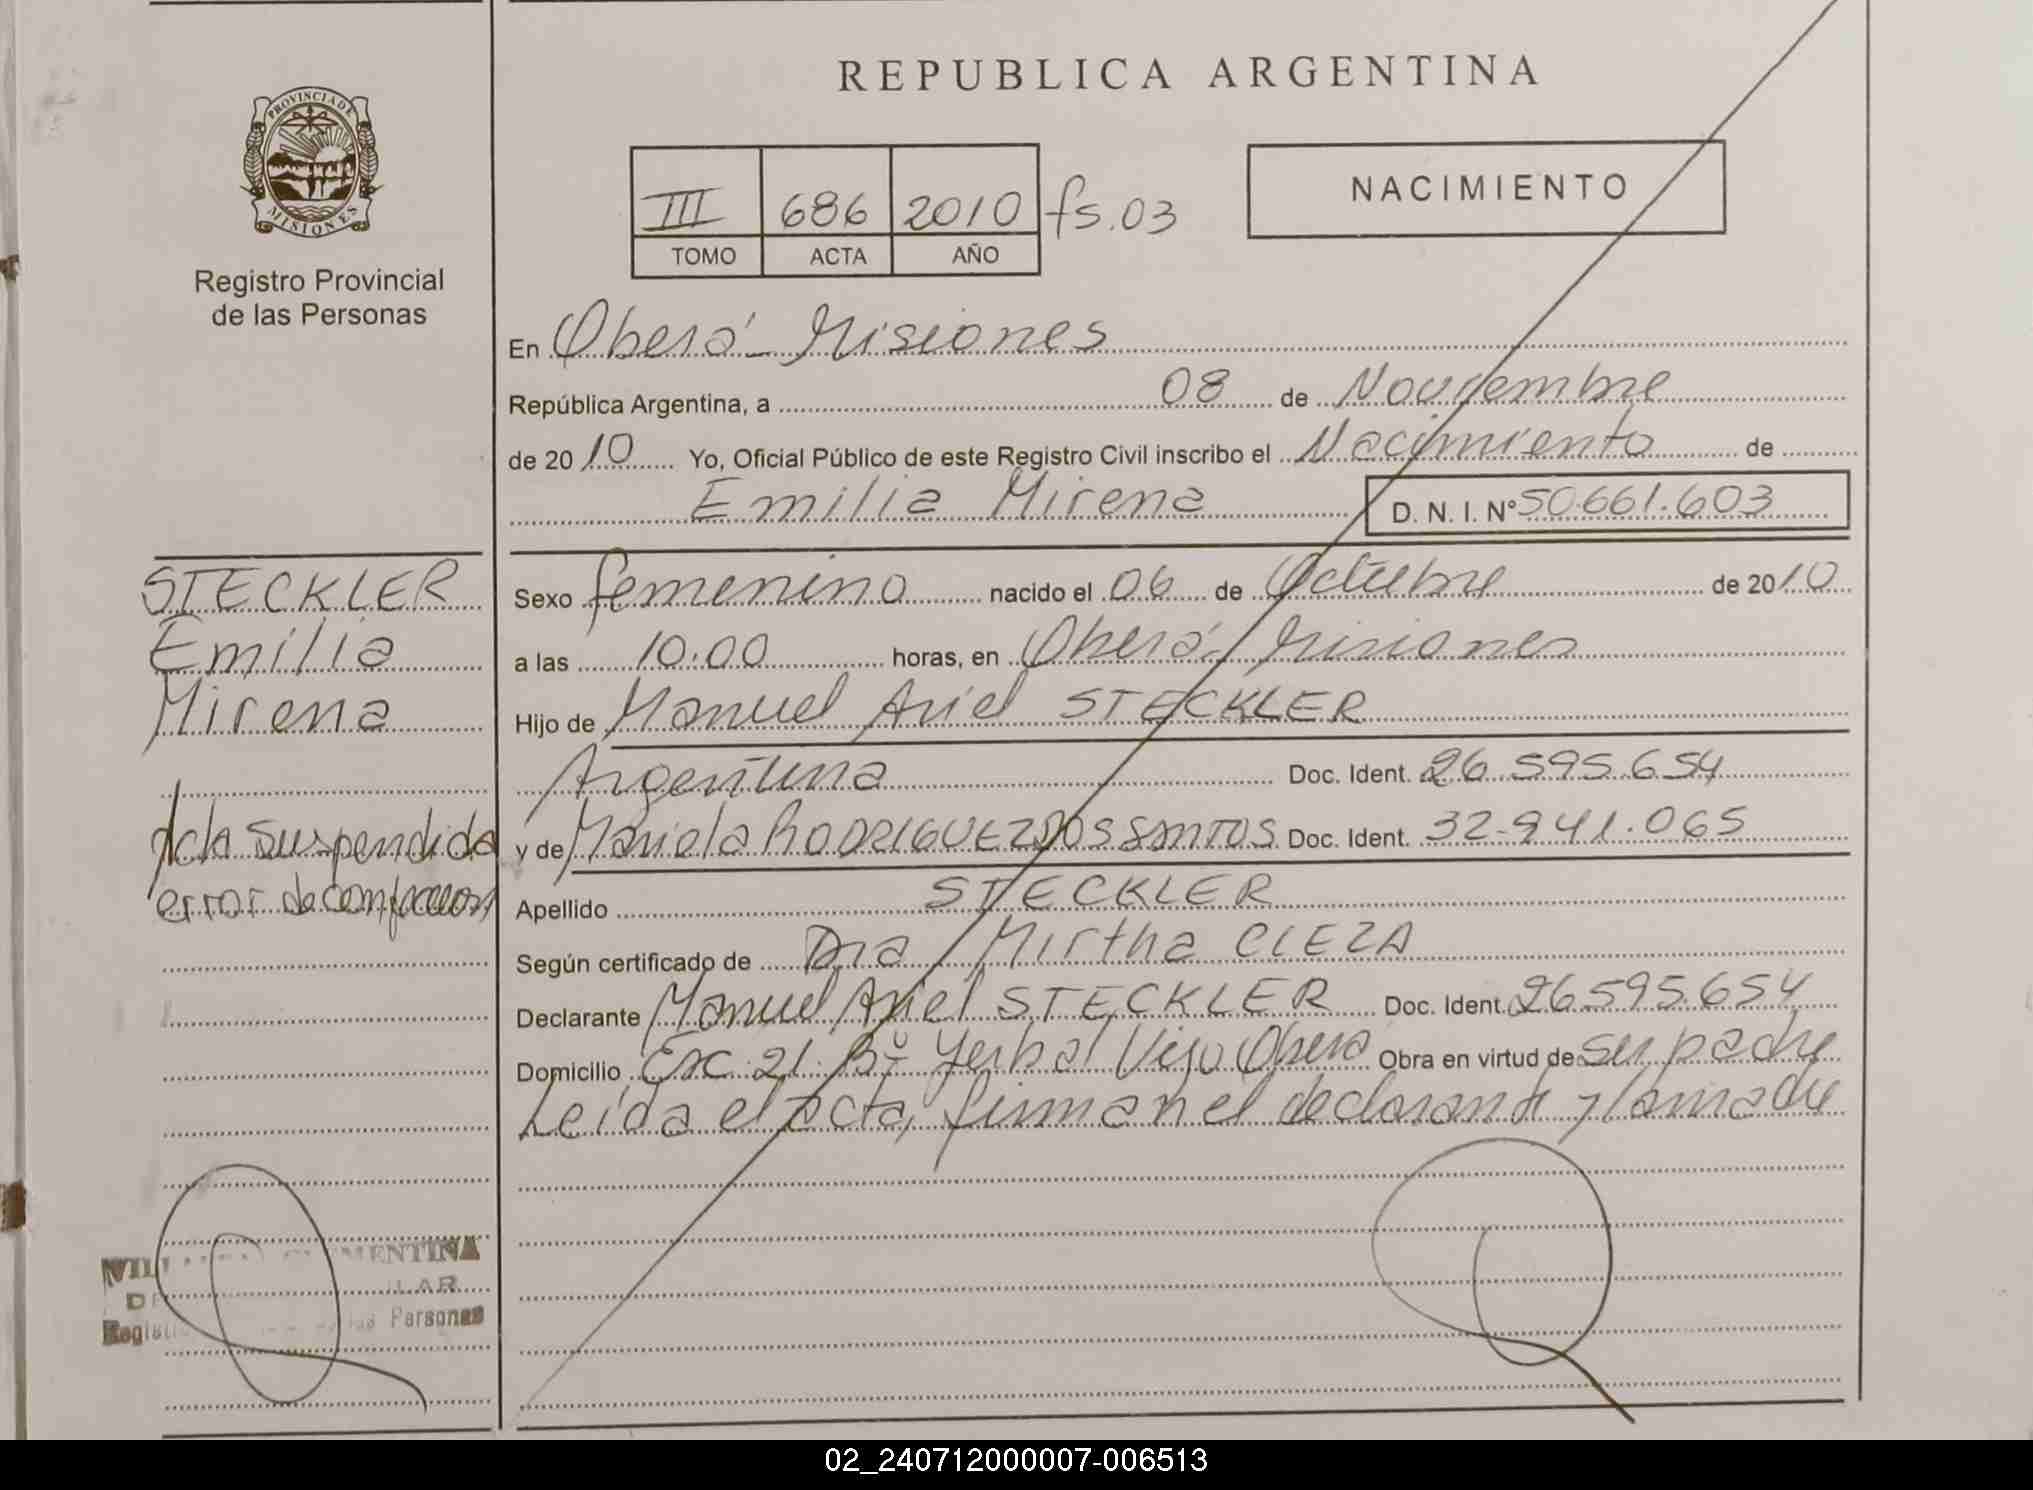 REPUBLICA ARGENTINA
PROVINCIA DE
MISIONES
Registro Provincial
de las Personas
III 686 2010 fs. 03
TOMO ACTA AÑO
NACIMIENTO
En Oberá - Misiones
República Argentina, a 08 de Noviembre
de 2010 Yo, Oficial Público de este Registro Civil inscribo el Nacimiento de
Emilia Mirena D. N. I. Nº 50.661.603
STECKLER
Emilia
Mirena
Acta suspendida
error de
Sexo femenino nacido el 06 de Octubre de 2010
a las 10.00 horas, en Oberá. Misiones
Hijo de Manuel Ariel STECKLER
Argentina Doc. Ident. 26.595.654
y de Mariela RODRIGUEZ DOS SANTOS Doc. Ident. 32.941.065
Apellido STECKLER
Según certificado de Dra Mirtha CLEZA
Declarante Manuel Ariel STECKLER Doc. Ident. 26.595.654
Domicilio Esc. 21. Bº Yerbal Viejo Oberá Obra en virtud de ser padre
Leída el acta, firman el declarante y la madre
CLEMENTINA
LAR
las Personas
02_240712000007-006513